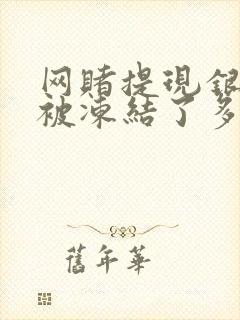 网赌提現銀
被凍結了多
舊年華